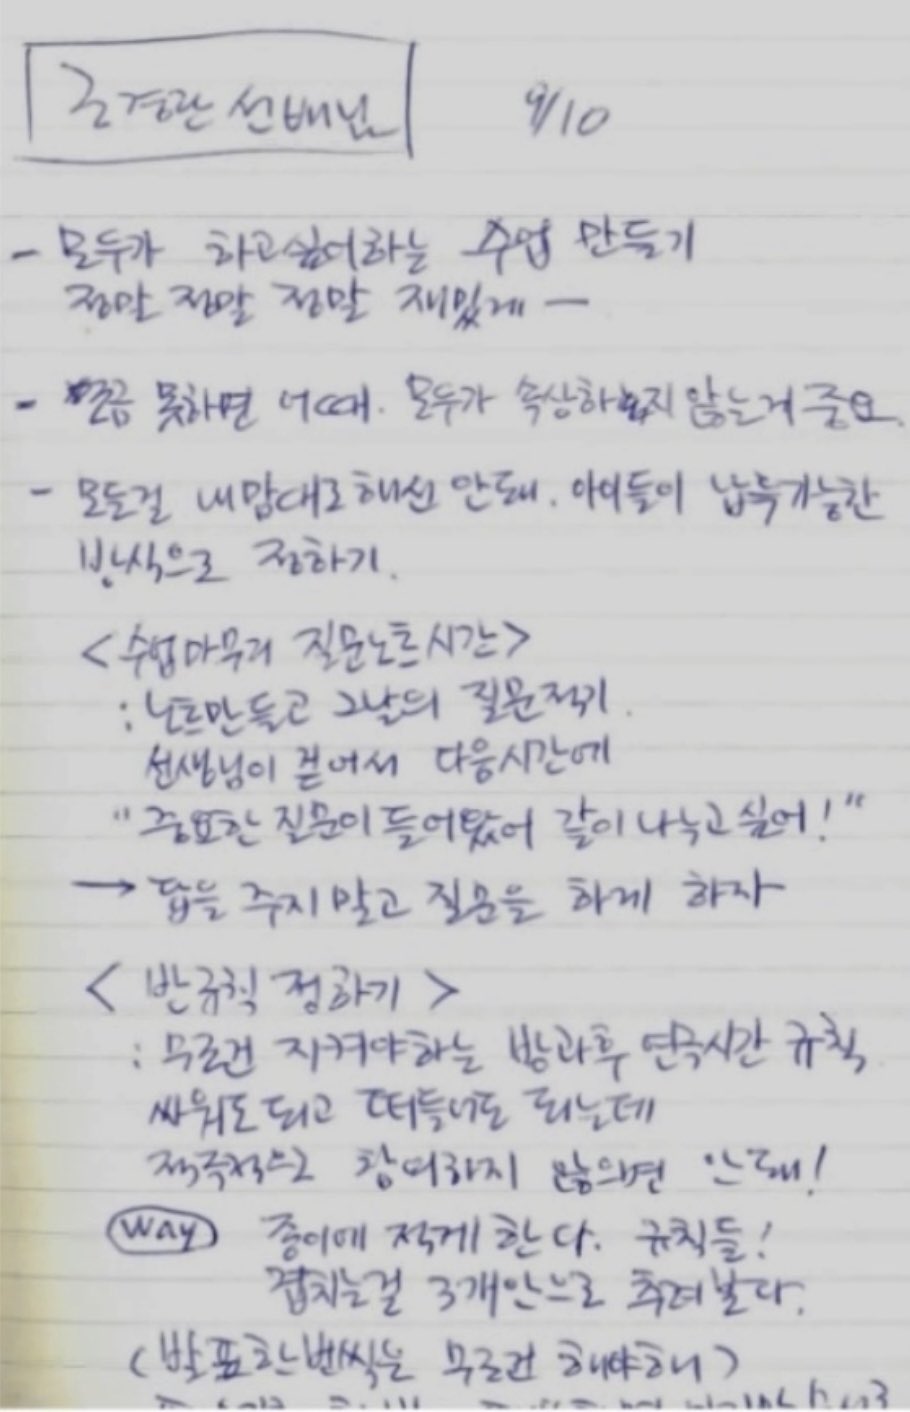 선배님 9/10
- 모두가 하고싶어하는 수업 만들기
정말 정말 정말 재밌게 —
- 조금 못하면 어때. 모두가 속상하지 않는게 중요.
- 모든걸 내맘대로해선 안돼. 아이들이 납득가능한
방식으로 정하기.
<수업마무리 질문노트시간>
: 노트만들고 그날의 질문적기.
선생님이 걷어서 다음시간에
"중요한 질문이 들어왔어 같이 나누고 싶어!"
→ 답을 주지 말고 질문을 하게 하자
< 반규칙 정하기 >
: 무조건 지켜야하는 방과후 연극시간 규칙
싸워도 되고 떠들어도 되는데
적극적으로 참여하지 않으면 안돼!
Way 종이에 적게 한다. 규칙들!
겹치는걸 3개안으로 추려본다.
(발표한번씩은 무조건 해야해)